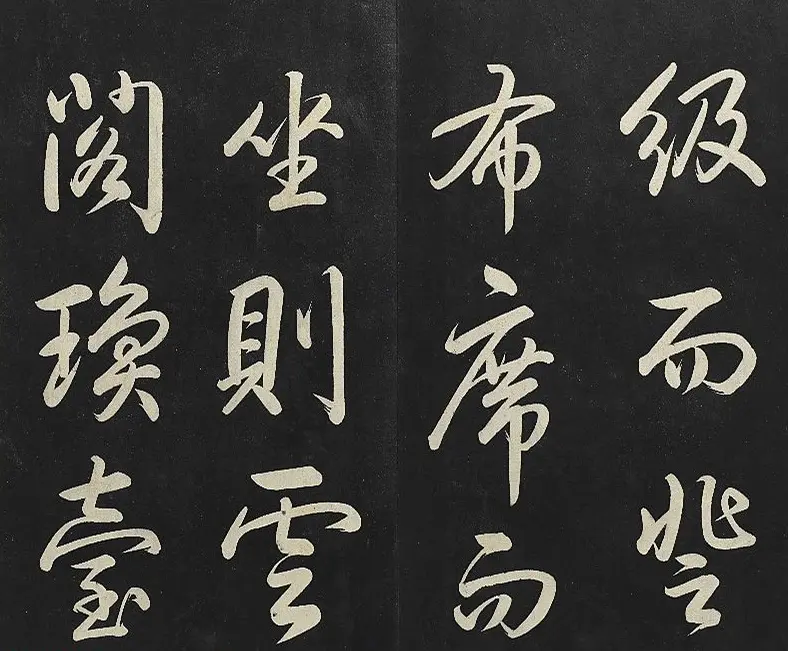 級而登
布席而
坐則雲
閣瓊臺